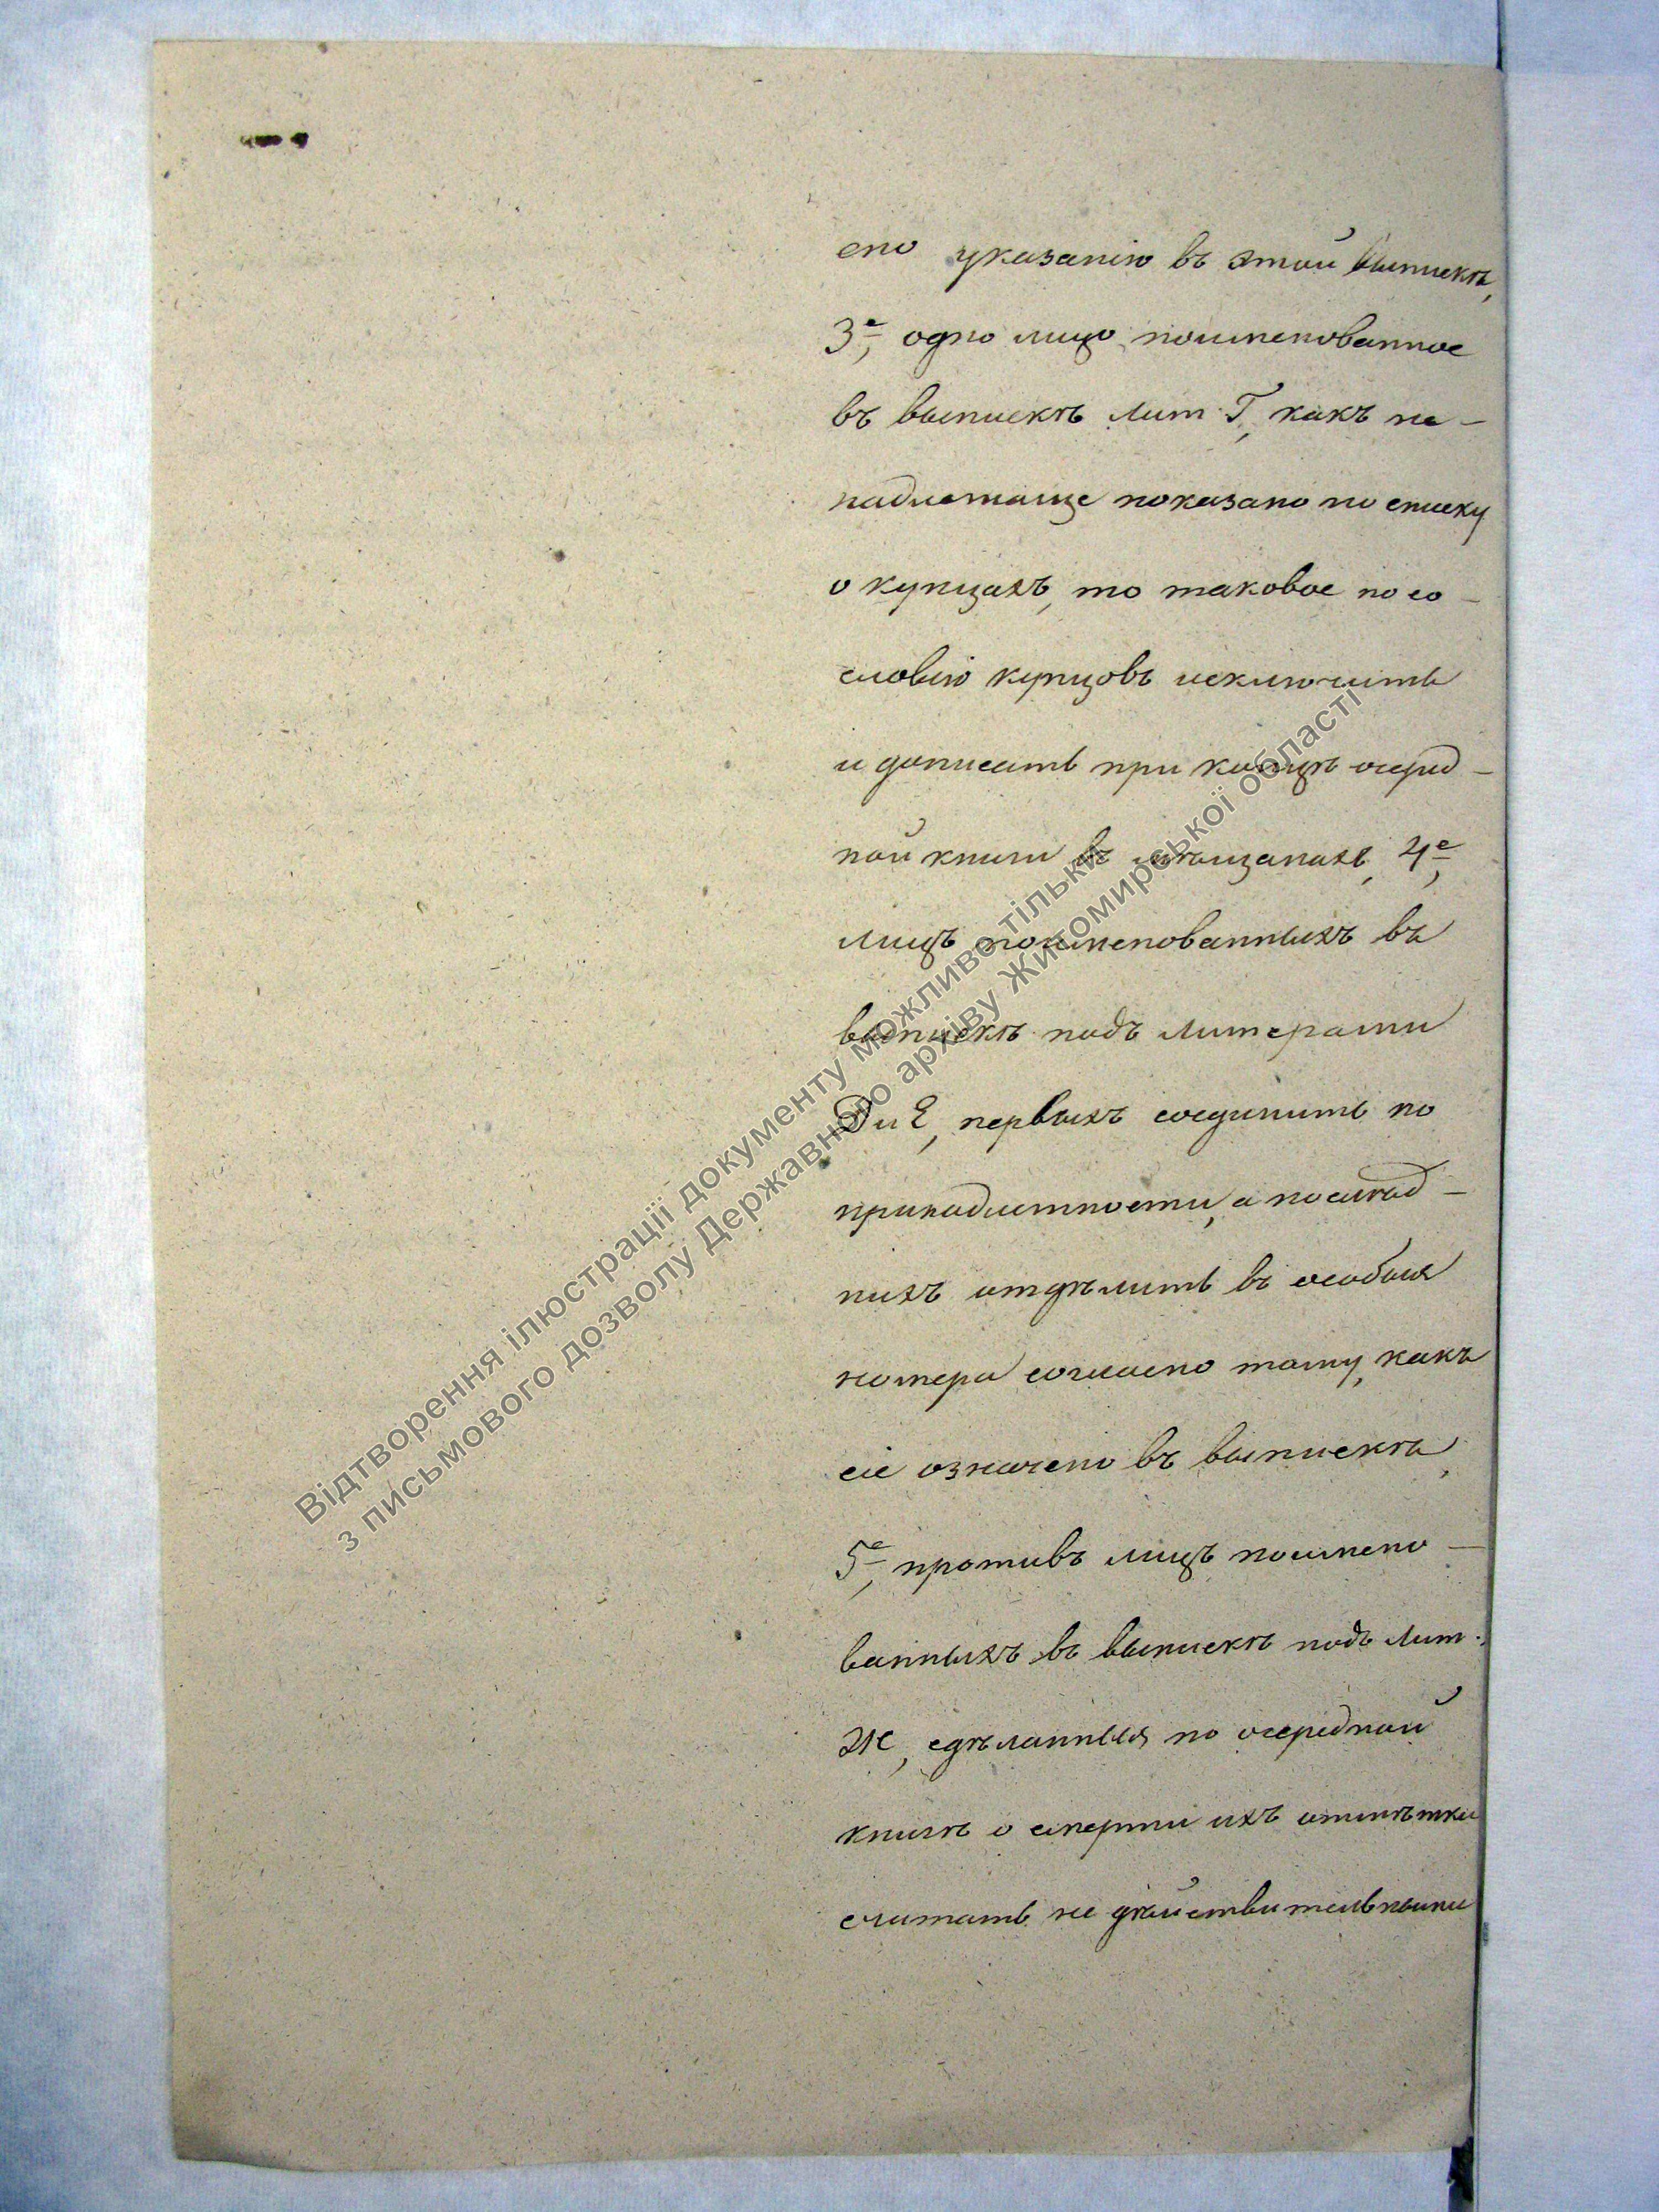 сно указанію въ этой выпискѣ,
3е, одно лицо поименованное
въ выпискѣ лит Г, какъ не-
надлежаще показано по списку
о купцахъ, то таковое по со-
словію купцовъ исключить
и дописать при концѣ очеред-
ной книги въ мѣщанахъ, 4е,
лицъ поименованныхъ въ
выпискѣ подъ литерами
Д и Е, первыхъ соединить по
принадлежности, а послѣд-
нихъ отдѣлить въ особыя
номера согласно тому, какъ
сіе означено въ выпискѣ,
5е, противъ лицъ поимено-
ванныхъ въ выпискѣ подъ лит.
Ж, сдѣланныя по очередной
книгѣ о смерти ихъ отмѣтки
считать не дѣйствительными
Відтворення ілюстрації документу можливе тільки
з письмового дозволу Державного архіву Житомирської області